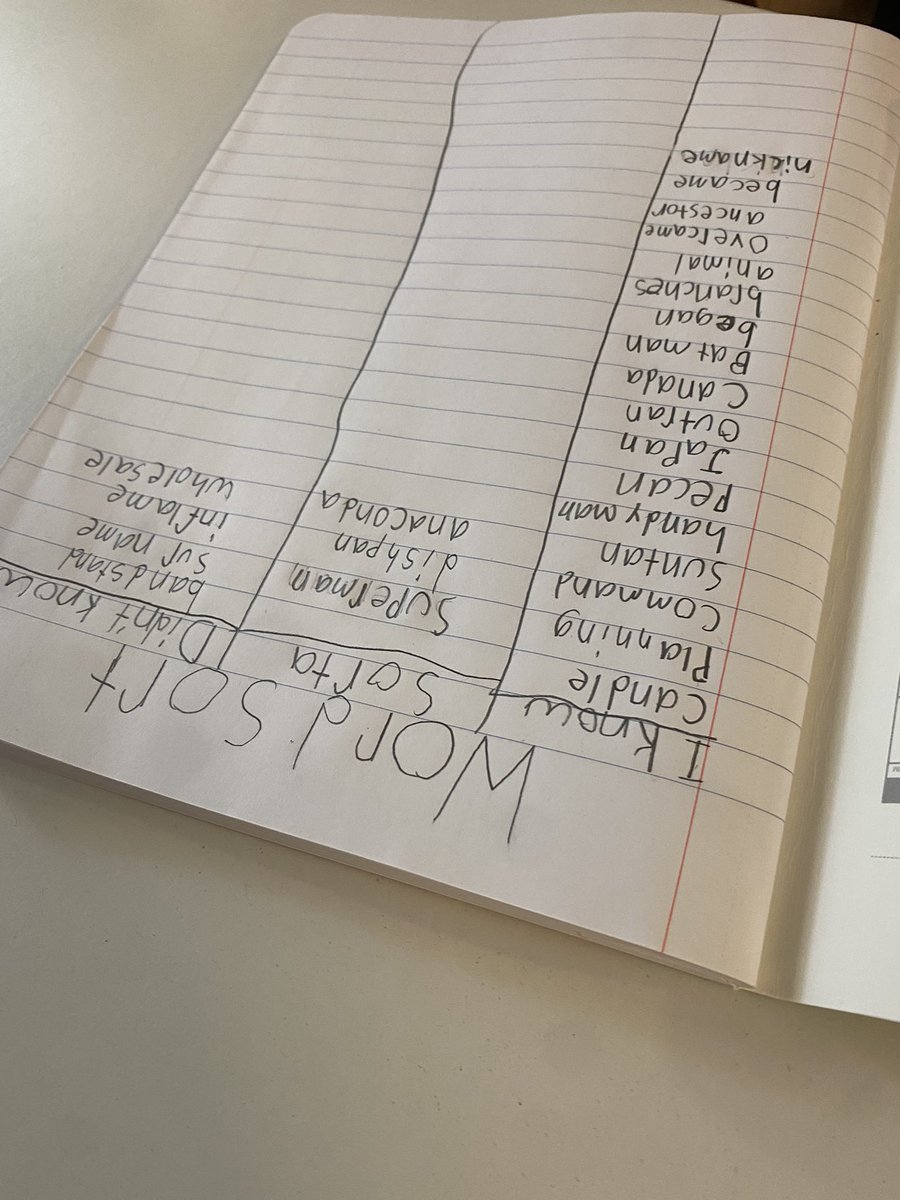 Word Sort
I know
Sorta
Didn't know
Candle
Planning
Command
Suntan
handyman
Pecan
Japan
Outran
Canada
Batman
began
branches
animal
Overcame
ancestor
became
nickname
Superman
dishpan
anaconda
bandstand
surname
inflame
wholesale